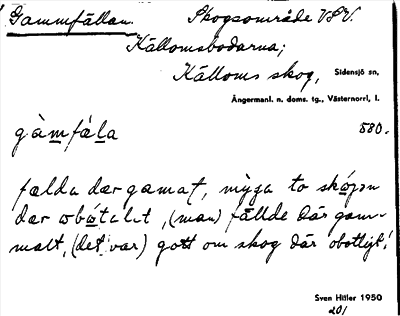 Gammfällan. Skogsområde VSV.
Källomsbodarna;
Källoms skog, Sidensjö sn,
Ångermanl. n. doms. tg., Västernorrl. l.
gàmfäla 580.
fælda dær gamat, mýga to skó̱gɘn
dær obó̱talit, (man) fällde där gam-
malt, (det var) gott om skog där obotligt!
Sven Hitler 1950
201